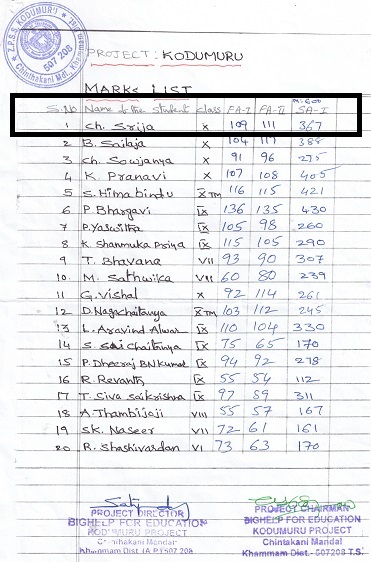 Z.P.S.S. KODUMURU
Chinthakani Mdl.
507 208
PROJECT: KODUMURU
MARKS LIST
M:600
S.No Name of the student class FA-I FA-II SA-I
1 Ch. Srija X 109 111 367
2 B. Sailaja X 104 117 388
3 Ch. Soujanya X 91 96 275
4 K. Pranavi X 107 108 405
5 S. Himabindu X TM 116 115 421
6 P. Bhargavi IX 136 135 430
7 P. Yaswitha IX 105 98 260
8 K. Shanmuka Priya IX 115 105 290
9 T. Bhavana VII 93 90 307
10. M. Sathwika VII 60 80 239
11 G. Vishal X 92 114 261
12 D. Nagachaitanya X TM 103 112 245
13 L. Aravind Alwar IX 110 104 330
14 S. Sai Chaitanya IX 75 65 170
15 P. Dheeraj BN Kumar IX 94 92 278
16 R. Revanth IX 55 54 112
17 T. Siva Saikrishna IX 97 89 311
18 A. Thambijoji VIII 55 57 167
19 SK. Naseer VII 72 61 161
20 R. Shashivardan VI 73 63 170
PROJECT DIRECTOR
BIGHELP FOR EDUCATION
KODUMURU PROJECT
Chinthakani Mandal
Khammam Dist. (A.P) 507 208
PROJECT CHAIRMAN
BIGHELP FOR EDUCATION
KODUMURU PROJECT
Chintakani Mandal
Khammam Dist.- 507208 T.S.